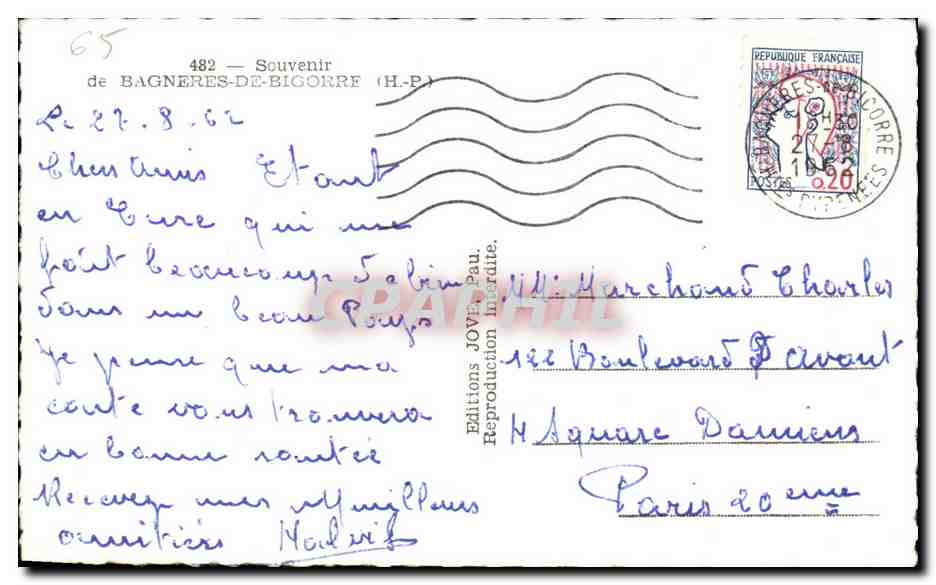 65
482 — Souvenir
de BAGNERES-DE-BIGORRE (H.-P.)
Le 27.8.62
Chers Amis Etant
en Cure qui me
fait beaucoup de bien
dans un beau Pays
Je pense que ma
carte vous trouvera
en bonne santée
Recevez mes Meilleurs
amitiés
Editions JOVE, Pau.
Reproduction Interdite.
CPAPHIL
REPUBLIQUE FRANÇAISE
POSTES 0,20
BAGNERES-DE-BIGORRE
HTES PYRENEES
27-8
1962
MMe Marchand Charles
122 Boulevard Davout
4 Square Damiens
Paris 20 eme